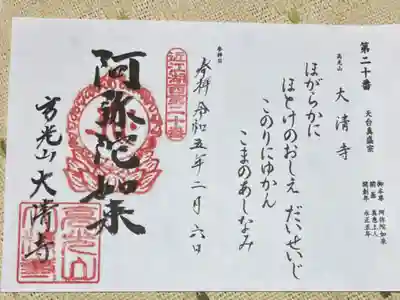 第二十番
天台真盛宗
高光山
大清寺
御本尊 阿弥陀如来
開基 真恵上人
開創年 永正五年
ほがらかに
ほとけのおしえ だいせいじ
このりにゆかん
こまのあしなみ
参拝日
奉拝 令和五年二月六日
近江湖西第二十番
阿弥陀如来
高光山 大清寺